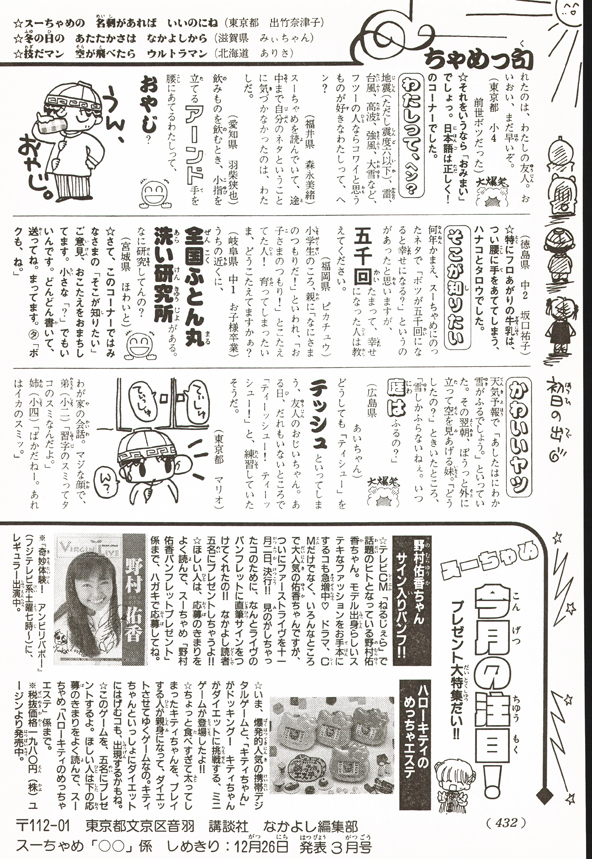 ☆スーちゃめの 名刺があれば いいのにね(東京都 出竹奈津子)
☆冬の日の あたたかさは なかよしから(滋賀県 みぃちゃん)
☆技だマン 空が飛べたら ウルトラマン(北海道 ありさ)
ちゃめっ句
れたのは、わたしの友人。お
いおい、まだ早いぞ。
(東京都 小4
前世ボツだった)
大爆笑
☆それをいうなら「おみまい」
でしょっ。日本語は正しく!
のコーナーでした。
わたしって、ヘン?
地震(ただし震度六以下)、雷、
台風、高波、強風、大雪など、
フツーの人ならコワイと思う
ものが好きなわたしって、ヘ
ン?
(福井県 森永美緒)
スーちゃめを読んでいて、途
中まで自分のネタということ
に気づかなかったのは、わた
しだ。
飲みものを飲むとき、小指を
立てる アーンド 手を
腰にあてるわたしって、
おやじ?
(愛知県 羽柴狭也)
うん、
おやじ。
(徳島県 中2 坂口祐子)
☆特にフロあがりの牛乳は、
つい腰に手をあててしまう、
ハナコとタロウでした。
そこが知りたい
何年かまえ、スーちゃめにのっ
たネタで「ボツが五千回にな
ると幸せになる?」というの
があったと思いますが、
五千回
たまって、幸せ
になった人は教
えてください。
(福岡県 ピカチュウ)
小学生のころ、親に「なにさま
のつもりだ!」といわれ、「お
子さまのつもり!」とこたえ
てたんだ!育ってしまったい
ま、どうこたえてますかぁ?
(岐阜県 中1 お子様卒業)
うちの近くに、
全国ふとん丸
洗い研究所
がある。
なに研究してんの?
(宮城県 ほわいと)
☆さて、このコーナーではみ
なさまの「そこが知りたい」
ご意見、おこたえをおまちし
てます。小さな〝?〟でもい
いんです。どんどん書いて、
送ってね。まってます。タ「ボ
クも、ね」
初日の出
かわいいヤツ
天気予報で「あしたはにわか
雪がふるでしょう」といって
た。その翌朝、ぼうっと外に
立って空を見あげる妹。「どう
したの?」ときいたところ、
「雪しかふらないねぇ。いつ
庭は
ふるの?」
大爆笑
(広島県 あいちゃん)
どうしても「ティシュー」を
テッシュ
といってしま
う、友人のおじいちゃん。あ
る日、だれもいないところで
「ティーッシュー! ティーッ
シュー!」と、練習していた
そうだ。
(東京都 マリオ)
てぃしゅー
てぃしゅー
ん?
わが家の会話。マジな顔で、
弟(小二)「習字のスミってタ
コのスミなんだよ」
姉(小四)「ばかだねー。あれ
はイカのスミッ」
スーちゃめ
今月の注目!
プレゼント大特集だい!!
野村佑香ちゃん
サイン入りパンフ!!
☆テレビCM「ねるぇら」で
話題のヒトとなっている野村佑
香ちゃん。モデル出身らしいス
テキなファッションをお手本に
するコも急増中♡ ドラマ、C
Mだけでなく、いろんなところ
で大人気の佑香ちゃんですが、
ついにファーストライヴを十一
月二日、決行!! 見のがしちゃっ
たコのために、なんとライヴの
パンフレットに直筆サインをつ
けてくれたの!! なかよし読者
五名にプレゼントしちゃう♪
☆ほしい人は、応募のきまりを
よく読んで、スーちゃめ「野村
佑香パンフレットプレゼント」
係まで、ハガキで応募してね。
VIRGIN LIVE
野村 佑香
※「奇妙体験! アンビリバボー」
(フジテレビ系土曜七時〜)に、
レギュラー出演中。
ハローキティの
めっちゃエステ
☆いま、爆発的人気の携帯デジ
タルゲームと、「キティちゃん」
がドッキング! キティちゃん
がダイエットに挑戦する、ミニ
ゲームが登場したよ!!
☆ちょっと食べすぎて太ってし
まったキティちゃんを、プレイ
する人が親身になって、ダイエッ
トさせてゆくゲームなの。キティ
ちゃんといっしょにダイエット
にはげむコも、出現するかもね。
☆このゲームを、五名にプレゼ
ントするよ。ほしい人は下の応
募のきまりをよく読んで、スー
ちゃめ「ハローキティのめっちゃ
エステ」係まで。
※税抜価格一九八〇円(株)ユ
ージンより発売中。
(432)
〒112-01 東京都文京区音羽 講談社 なかよし編集部
スーちゃめ「○○」係 しめきり:12月26日 発表3月号